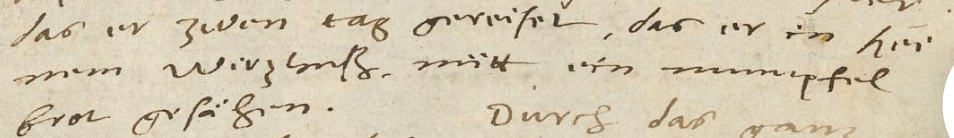 das er zwen tag gereiset, das er in kei
nem Wirzhuß. nütt ein mumpfel
brot gesähen. Durch das ganz